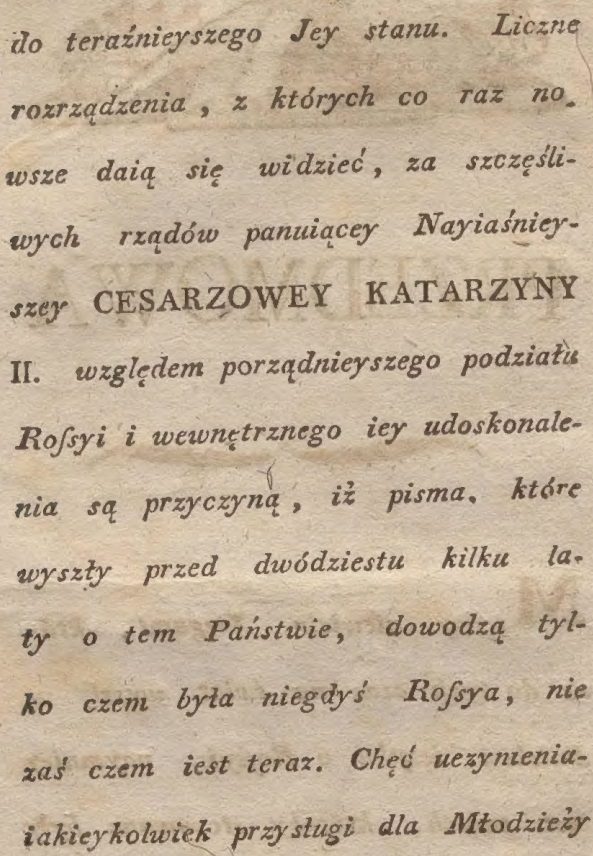 do teraźnieyszego Jey stanu. Liczne
rozrządzenia, z których co raz no-
wsze daią się widzieć, za szczęśli-
wych rządów panuiącey Nayiaśniey-
szey CESARZOWEY KATARZYNY
II. względem porządnieyszego podziału
Roſsyi i wewnętrznego iey udoskonale-
nia są przyczyną, iż pisma, które
wyszły przed dwódziestu kilku la-
ty o tem Państwie, dowodzą tyl-
ko czem była niegdyś Roſsya, nie
zaś czem iest teraz. Chęć uczynienia-
iakieykolwiek przysługi dla Młodzieży